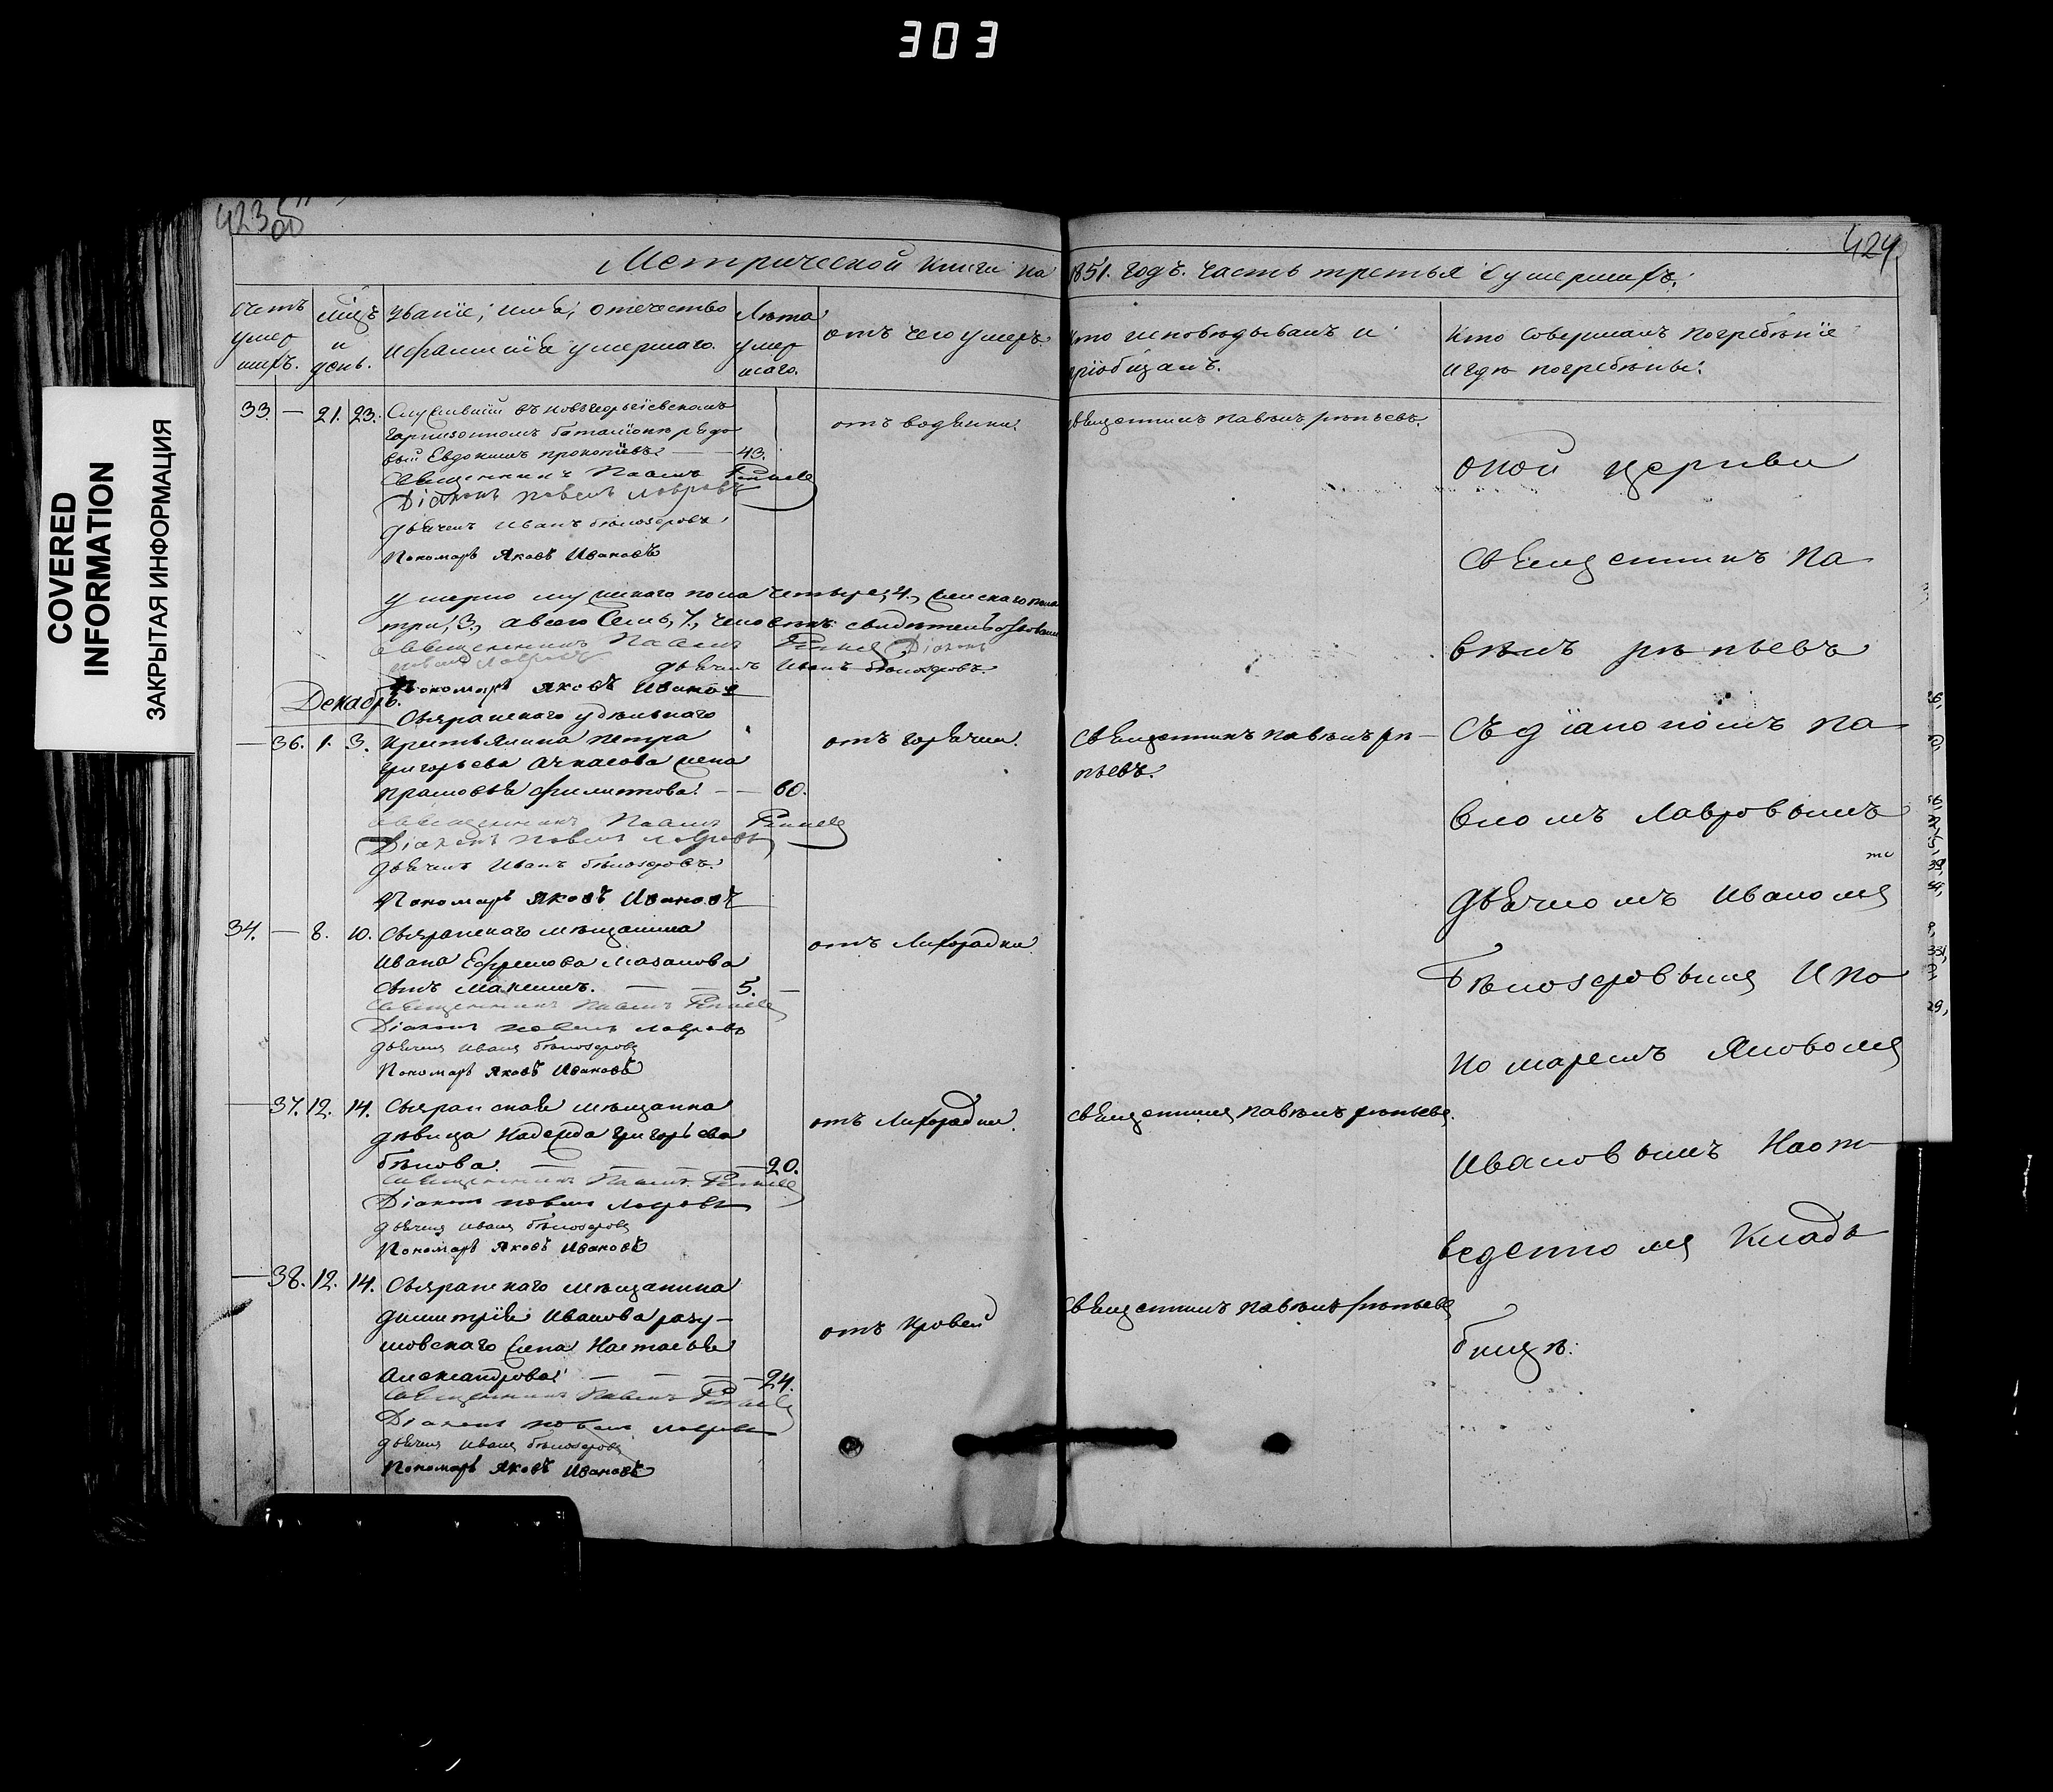 303
COVERED
INFORMATION
ЗАКРЫТАЯ ИНФОРМАЦИЯ
423 об
424
Метрической книги на 1851. годъ. часть третья оумершихъ.
Счетъ умершихъ.
мцъ и день.
званіе, имя, отечество и фамилія умершаго.
Лѣта умершаго.
отъ чего умеръ.
кто исповѣдывалъ и пріобщалъ.
кто совершалъ погребеніе и гдѣ погребены.
33. — 21. 23. Служившій въ новогеоргіевскомъ
гарнизонномъ баталіонѣ рядо
вый Евдокимъ прокопіевъ. — 43.
отъ водянки.
священникъ павелъ рѣпьевъ.
Священникъ Павелъ
Діаконъ павелъ Лавровъ
дьячекъ Иванъ бѣлозеровъ,
Пономарь Яковъ Ивановъ
умерло мужескаго пола четыре, 4, женскаго пола
три, 3, а всего семь, 7, человѣкъ.
Священникъ Павелъ Діаконъ
павелъ Лавровъ дьячекъ Иванъ бѣлозеровъ.
Пономарь Яковъ Ивановъ
Декабрь.
— 36. 1. 3. Сызранскаго удѣльнаго
крестьянина петра
григорьева жена
филиппова. — 60.
отъ горячки.
священникъ павелъ рѣ—
пьевъ.
Священникъ Павелъ
Діаконъ павелъ Лавровъ
дьячекъ Иванъ бѣлозеровъ.
Пономарь Яковъ Ивановъ
34. — 8. 10. Сызранскаго мѣщанина
Ивана Ефремова Мазанова
сынъ Максимъ. — — 5. —
отъ Лихорадки
Священникъ Павелъ
Діаконъ павелъ Лавровъ
дьячекъ Иванъ бѣлозеровъ
Пономарь Яковъ Ивановъ
— 37. 12. 14. Сызранская мѣщанка
дѣвица Надежда григорьева
бѣлова. — — — 20.
отъ Лихорадки.
священникъ павелъ рѣпьевъ.
Священникъ Павелъ
Діаконъ павелъ Лавровъ
дьячекъ Иванъ бѣлозеровъ
Пономарь Яковъ Ивановъ
— 38. 12. 14. Сызранскаго мѣщанина
димитрія Иванова разу—
мовскаго жена Настасья
Александрова. — — — 24.
отъ кровей
священникъ павелъ рѣпьевъ
Священникъ Павелъ
Діаконъ павелъ Лавровъ
дьячекъ Иванъ бѣлозеровъ
Пономарь Яковъ Ивановъ
оной церкви
священникъ па
велъ рѣпьевъ
съ діакономъ па
вломъ Лавровымъ
дьячкомъ Иваномъ
бѣлозеровымъ и по
номаремъ Яковомъ
Ивановымъ на от
веденномъ кладъ
бищѣ.